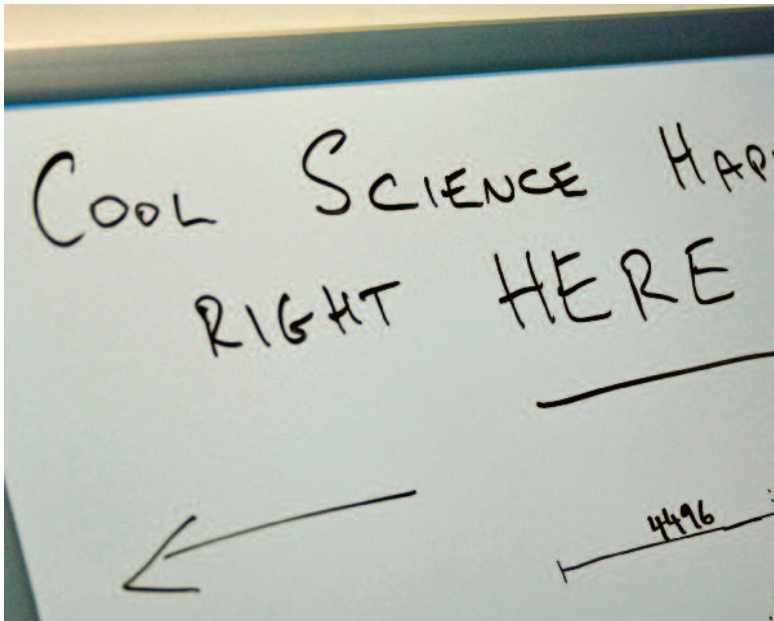 COOL SCIENCE HAP
RIGHT HERE
4496